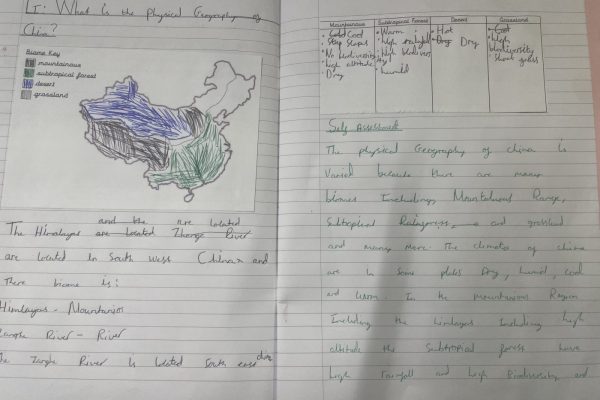 LI: What is the physical Geography of
China?
Biome Key
mountainous
subtropical forest
desert
grassland
and the are located
The Himalayas are located Zhange River
are located in South west China and
There biome is:
Himlayas - Mountanios
River - River
The Zanghe River is located South east china
Mountainous
Cold Cool
Steep Slopes
No biodiversity
high altitude
Dry
Subtropical Forest
Warm
high rainfall
High biodiversity
humid
Desert
Hot
Dry Dry
Grassland
Cool
High
biodiversity
Short grass
Self Assessment
The physical Geography of china is
Varied because there are many
biomes Including Mountainous Range,
Subtropical Rainforess, and grassland
and many more. The climates of china
are in some places Dry, humid, cool
and warm. In the mountainous Region
Including the himlayas Including high
altitude the Subtropical forest have
high rainfall and high Biodiversity and